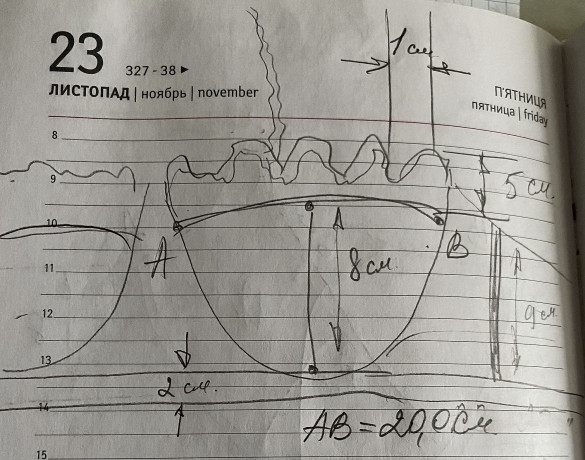 23
327 - 38 ►
ЛИСТОПАД | ноябрь | november
П'ЯТНИЦЯ
пятница | friday
1 см.
8
9
5 см.
10
A
B
8 см.
11
12
9 см.
13
2 см.
14
AB = 20,0 см
15